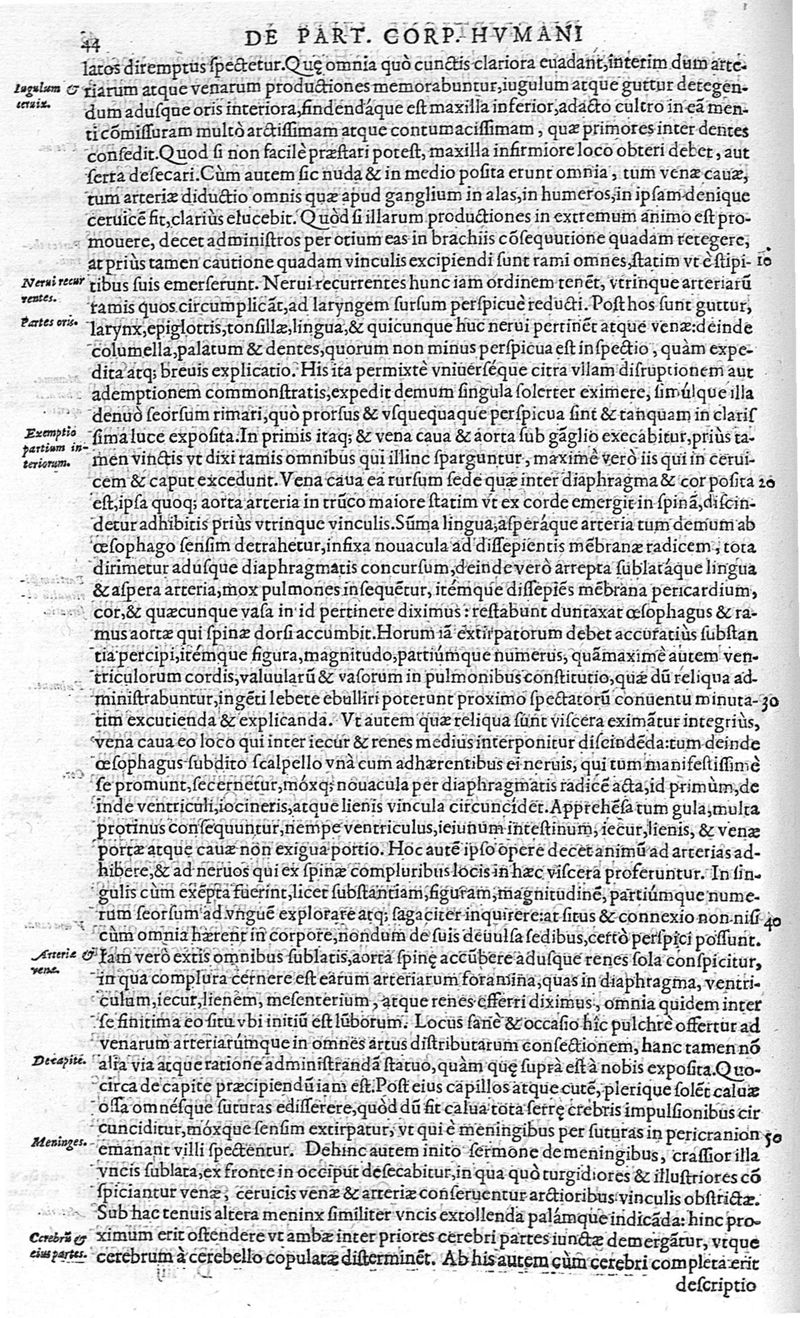 44 DE PART. CORP. HVMANI
latos diremptus ſpectetur. Quę omnia quò cunctis clariora euadant, interim dum arte-
Iugulum & ceruix.
riarum atque venarum productiones memorabuntur, iugulum atque guttur detegen-
dum aduſque oris interiora, findendáque eſt maxilla inferior, adacto cultro in eā men-
ti cōmiſſuram multò arctiſſimam atque contumaciſſimam, quæ primores inter dentes
conſedit. Quod ſi non facilè præſtari poteſt, maxilla infirmiore loco obteri debet, aut
ſerra deſecari. Cùm autem ſic nuda & in medio poſita erunt omnia, tum venæ cauæ,
tum arteriæ diductio omnis quæ apud ganglium in alas, in humeros, in ipſam denique
ceruicē fit, clariùs elucebit. Quòd ſi illarum productiones in extremum animo eſt pro-
mouere, decet adminiſtros per otium eas in brachiis cōſequutione quadam retegere,
at priùs tamen cautione quadam vinculis excipiendi ſunt rami omnes, ſtatim vt è ſtipi- 10
Nerui recurrentes.
tibus ſuis emerſerunt. Nerui recurrentes hunc iam ordinem tenēt, vtrinque arteriarū
ramis quos circumplicāt, ad laryngem ſurſum perſpicuè reducti. Poſt hos ſunt guttur,
Partes oris.
larynx, epiglottis, tonſillæ, lingua, & quicunque huc nerui pertinēt atque venæ: deinde
columella, palatum & dentes, quorum non minus perſpicua eſt inſpectio, quàm expe-
dita atq; breuis explicatio. His ita permixtè vniuerſéque citra vllam diſruptionem aut
ademptionem commonſtratis, expedit demum ſingula ſolerter eximere, ſimúlque illa
denuò ſeorſum rimari, quò prorſus & vſquequaque perſpicua ſint & tanquam in clariſ
Exemptio partium interiorum.
ſima luce expoſita. In primis itaq; & vena caua & aorta ſub gāglio execabitur, priùs ta-
men vinctis vt dixi ramis omnibus qui illinc ſparguntur, maximè verò iis qui in cerui-
cem & caput excedunt. Vena caua ea rurſum ſede quæ inter diaphragma & cor poſita 20
eſt, ipſa quoq; aorta arteria in trūco maiore ſtatim vt ex corde emergit in ſpinā, diſcin-
detur adhibitis priùs vtrinque vinculis. Sūma lingua, aſperáque arteria tum demum ab
œſophago ſenſim detrahetur, infixa nouacula ad diſſepientis mēbranæ radicem, tota
dirimetur aduſque diaphragmatis concurſum, deinde verò arrepta ſublatáque lingua
& aſpera arteria, mox pulmones inſequētur, itémque diſſepiēs mēbrana pericardium,
cor, & quæcunque vaſa in id pertinere diximus: reſtabunt duntaxat œſophagus & ra-
mus aortæ qui ſpinæ dorſi accumbit. Horum iā extirpatorum debet accuratiùs ſubſtan
tia percipi, itémque figura, magnitudo, partiúmque numerus, quāmaximè autem ven-
triculorum cordis, valuularū & vaſorum in pulmonibus conſtitutio, quæ dū reliqua ad-
miniſtrabuntur, ingēti lebete ebulliri poterunt proximo ſpectatorū conuentu minuta- 30
tim excutienda & explicanda. Vt autem quæ reliqua ſunt viſcera eximātur integriùs,
vena caua eo loco qui inter iecur & renes medius interponitur diſcindēda: tum deinde
œſophagus ſubdito ſcalpello vnà cum adhærentibus ei neruis, qui tum manifeſtiſſimè
ſe promunt, ſecernetur, móxq; nouacula per diaphragmatis radicē acta, id primùm, de
inde ventriculi, iocineris, atque lienis vincula circuncidet. Apprehēſa tum gula, multa
protinus conſequuntur, nempe ventriculus, ieiunum inteſtinum, iecur, lienis, & venæ
portæ atque cauæ non exigua portio. Hoc autē ipſo opere decet animū ad arterias ad-
hibere, & ad neruos qui ex ſpinæ compluribus locis in hæc viſcera proferuntur. In ſin-
gulis cùm exēpta fuerint, licet ſubſtantiam, figuram, magnitudinē, partiúmque nume-
rum ſeorſum ad vnguē explorare atq; ſagaciter inquirere: at ſitus & connexio non niſi 40
cùm omnia hærent in corpore, nondum de ſuis deuulſa ſedibus, certò perſpici poſſunt.
Arteriæ & venæ.
Iam verò extis omnibus ſublatis, aorta ſpinę accūbere aduſque renes ſola conſpicitur,
in qua complura cernere eſt earum arteriarum foramina, quas in diaphragma, ventri-
culum, iecur, lienem, meſenterium, atque renes efferri diximus, omnia quidem inter
ſe finitima eo ſitu vbi initiū eſt lūborum. Locus ſanè & occaſio hîc pulchrè offertur ad
venarum arteriarúmque in omnes artus diſtributarum conſectionem, hanc tamen nō
De capite.
alia via atque ratione adminiſtrandā ſtatuo, quàm quę ſuprà eſt à nobis expoſita. Quo-
circa de capite præcipiendū iam eſt. Poſt eius capillos atque cutē, plerique ſolēt caluæ
oſſa omnéſque ſuturas ediſſerere, quòd dū fit calua tota ſerrę crebris impulſionibus cir
cunciditur, móxque ſenſim extirpatur, vt qui è meningibus per ſuturas in pericranion 50
Meninges.
emanant villi ſpectentur. Dehinc autem inito ſermone de meningibus, craſſior illa
vncis ſublata, ex fronte in occiput deſecabitur, in qua quò turgidiores & illuſtriores cō
ſpiciantur venæ, ceruicis venæ & arteriæ conſeruentur arctioribus vinculis obſtrictæ.
Sub hac tenuis altera meninx ſimiliter vncis extollenda palámque indicāda: hinc pro-
Cerebrū & eius partes.
ximum erit oſtendere vt ambæ inter priores cerebri partes iunctæ demergātur, vtque
cerebrum à cerebello copulatæ diſterminēt. Ab his autem cùm cerebri completa erit
deſcriptio